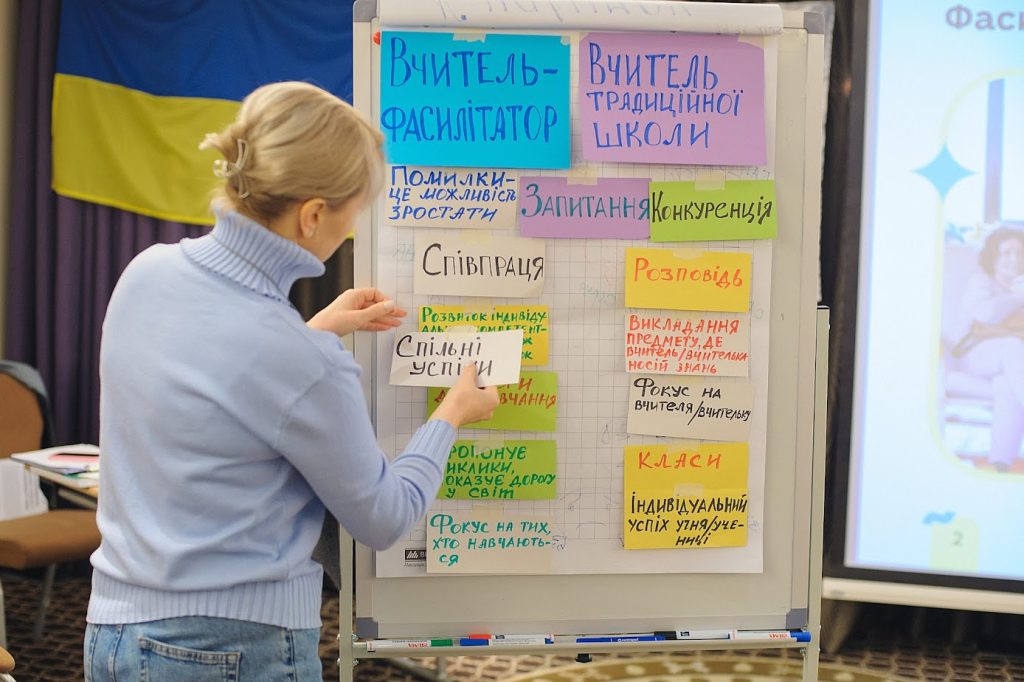 Вчитель-
фасилітатор
Вчитель
традиційної
школи
Помилки-
це можливість
зростати
Запитання
Конкуренція
Співпраця
Розповідь
Розвиток індивіду
компетент-
Спільні
успіхи
Викладання
предмету, де
вчитель/вчителька
носій знань
Фокус на
вчителя/вчительку
дорогу
у світ
Класи
Індивідуальний
успіх учня/уче-
ниці
Фокус на тих,
хто навчають-
ся
2